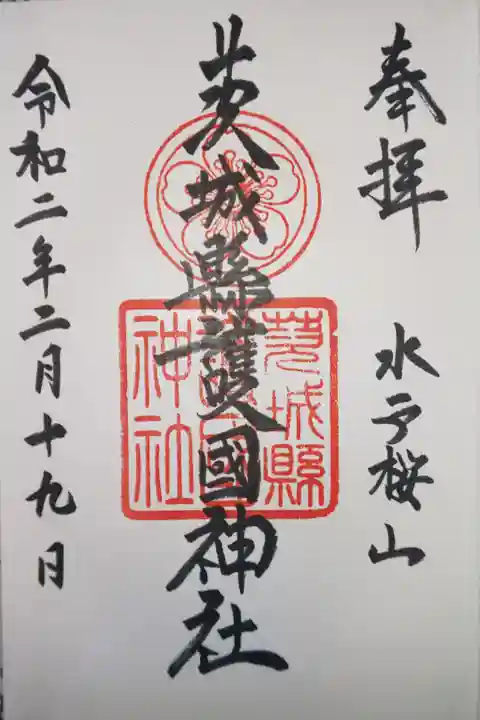 奉拝
水戸桜山
茨城縣護國神社
茨城縣護國神社
令和二年二月十九日